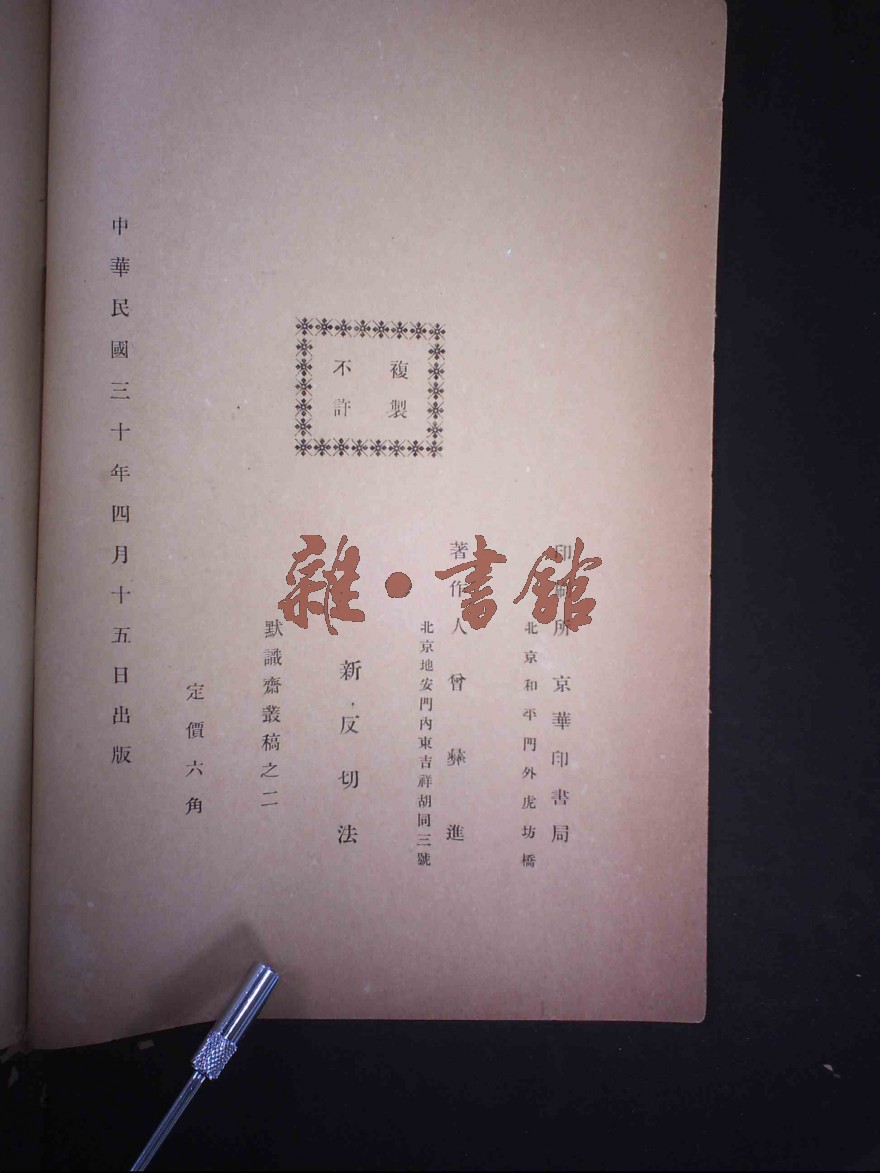 複製
不許
印刷所 京華印書局
北京和平門外虎坊橋
著作人 曾彝進
北京地安門內東吉祥胡同三號
新反切法
默識齋叢稿之二
定價六角
中華民國三十年四月十五日出版
雜·書館